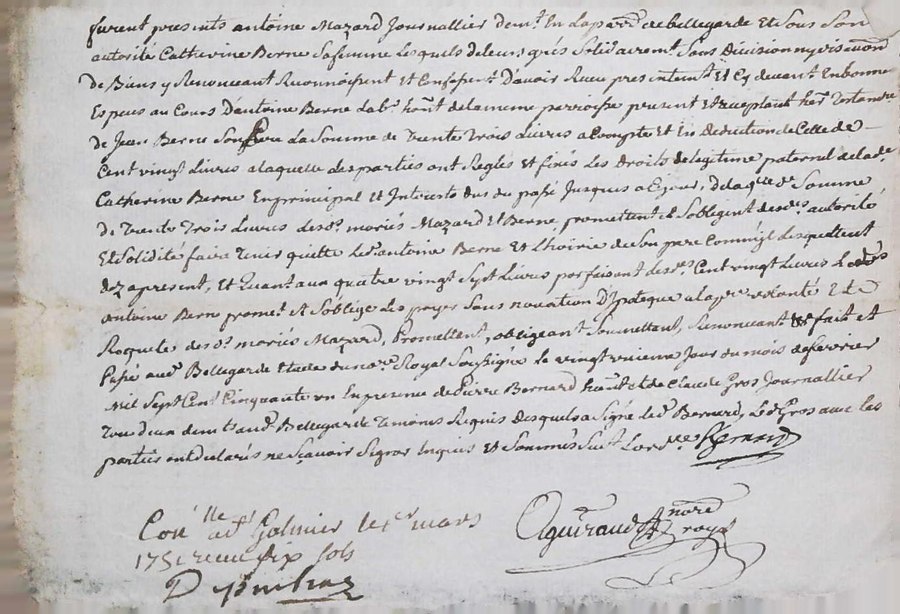 furent presents antoine Mazard Journallier demt. En la parr. de bellegarde Et Sous Son
autorité Catherine Berne Safemme Lesquels deleurs grés Solidairemt. Sans Division ny discution
de Biens y Renonceant Reconnoissent Et Confessent Davoir Receu presentemt. Et Cy devant Enbonne
Especes au Cours Dantoine Berne Labr. hant. delameme parroisse present Et acceptant her. Testamre.
de Jean Berne Son pere La Somme de Trente Trois Livres a Compte Et En Deduction de Celle de
Cent vingt Livres a laquelle des parties ont Reglés et fixés Les Droits de legitime paternel delade.
Catherine Berne En principal et Interests dus du passé Jusques a Ce jour, Delaqlle. de. Somme
de Trente Trois Livres desds. mariés Mazard Et Berne promettent Et Soblegent desds. autorité
Et Solidité faire Tenir quitte Led. antoine Berne Et Lhoirie de Son pere Comme Lesquittent
dez apresent, Et Quant aux quatre vingt Sept Livres parfaisant desds. Cent vingt Livres Led.
antoine Berne promet. Et Soblege Les payer Sans novation Dhypoteque a la pre.
Requete desds. mariés Mazard, Promettent, obligeant Soumettant, Renonceant fait et
Passé aud. Bellegarde Etude du nore. Royal Soussigne le vingt unieme Jour du mois defevrier
Mil Sept Cent Cinquante un En presence de Pierre Bernard hant. et de Claude Gros Journallier
Tous deux demts. aud. Bellegarde Temoins Requis desquels a Signé led. Bernard, Led. Gros avec les
parties ont declarés ne Sçavoir Signer Enquis Et Sommés Suivt. Lordce. Bernard
Con'lle at. Galmier le 1er mars
1751 receu six sols
Aguiraud nore. royal